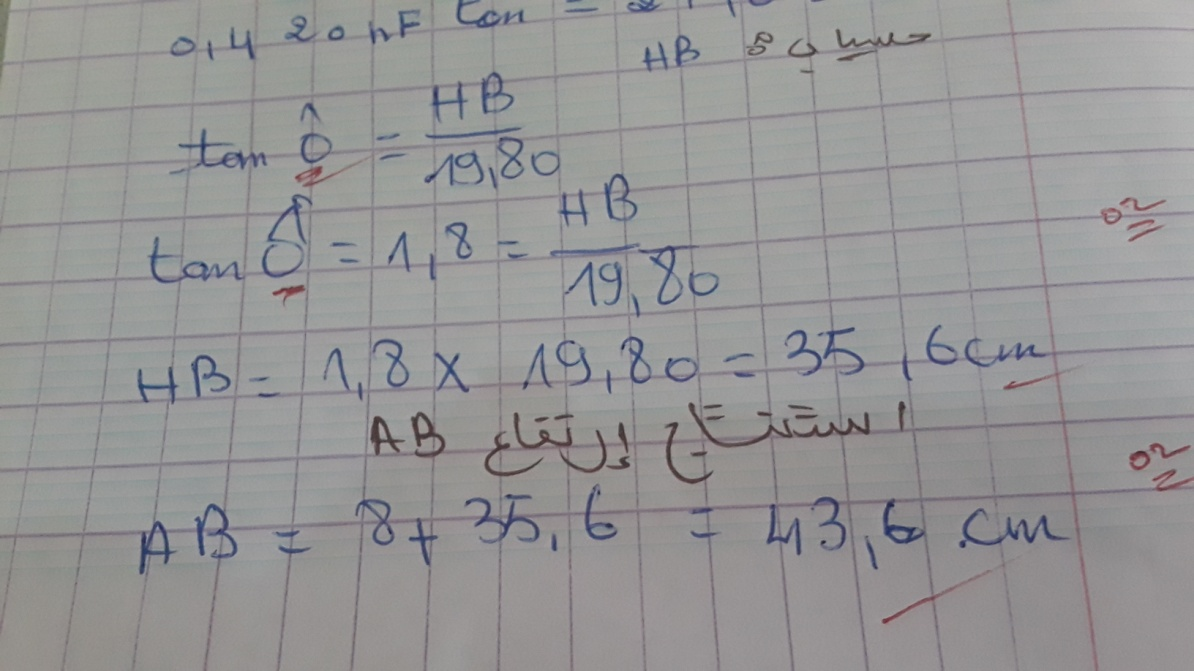 0,4 20 tan =
HB
tan Ô = HB / 19,80
tan Ô = 1,8 = HB / 19,80
02
HB = 1,8 x 19,80 = 35,6cm
استنتاج إرتفاع AB
02
AB = 8 + 35,6 = 43,6 cm